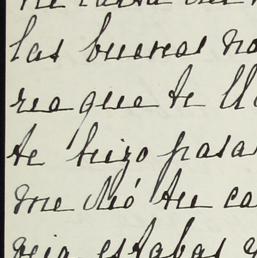 las buenas no
rea que te ll
te hizo pasa
me dió tu ca
estabas